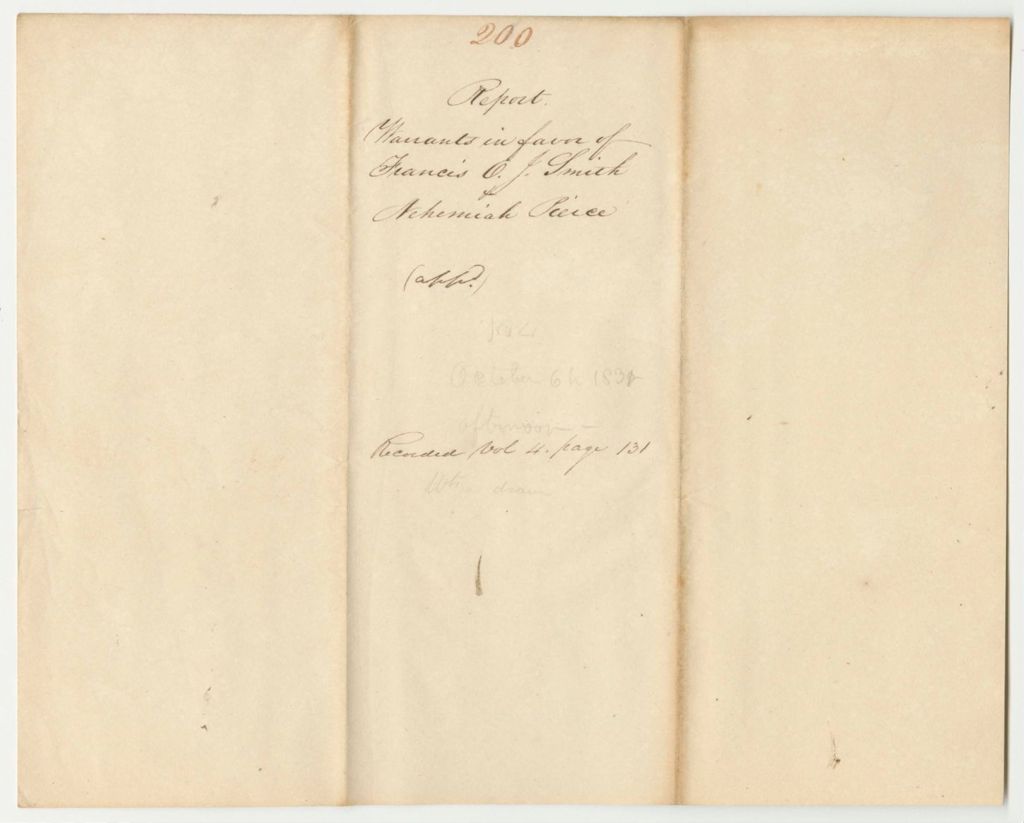 200
Report.
Warrants in favor of
Francis O. J. Smith
&
Nehemiah Pierce
(appd.)
October 6th 183
afternoon –
Recorded Vol 4. page 131
drawn